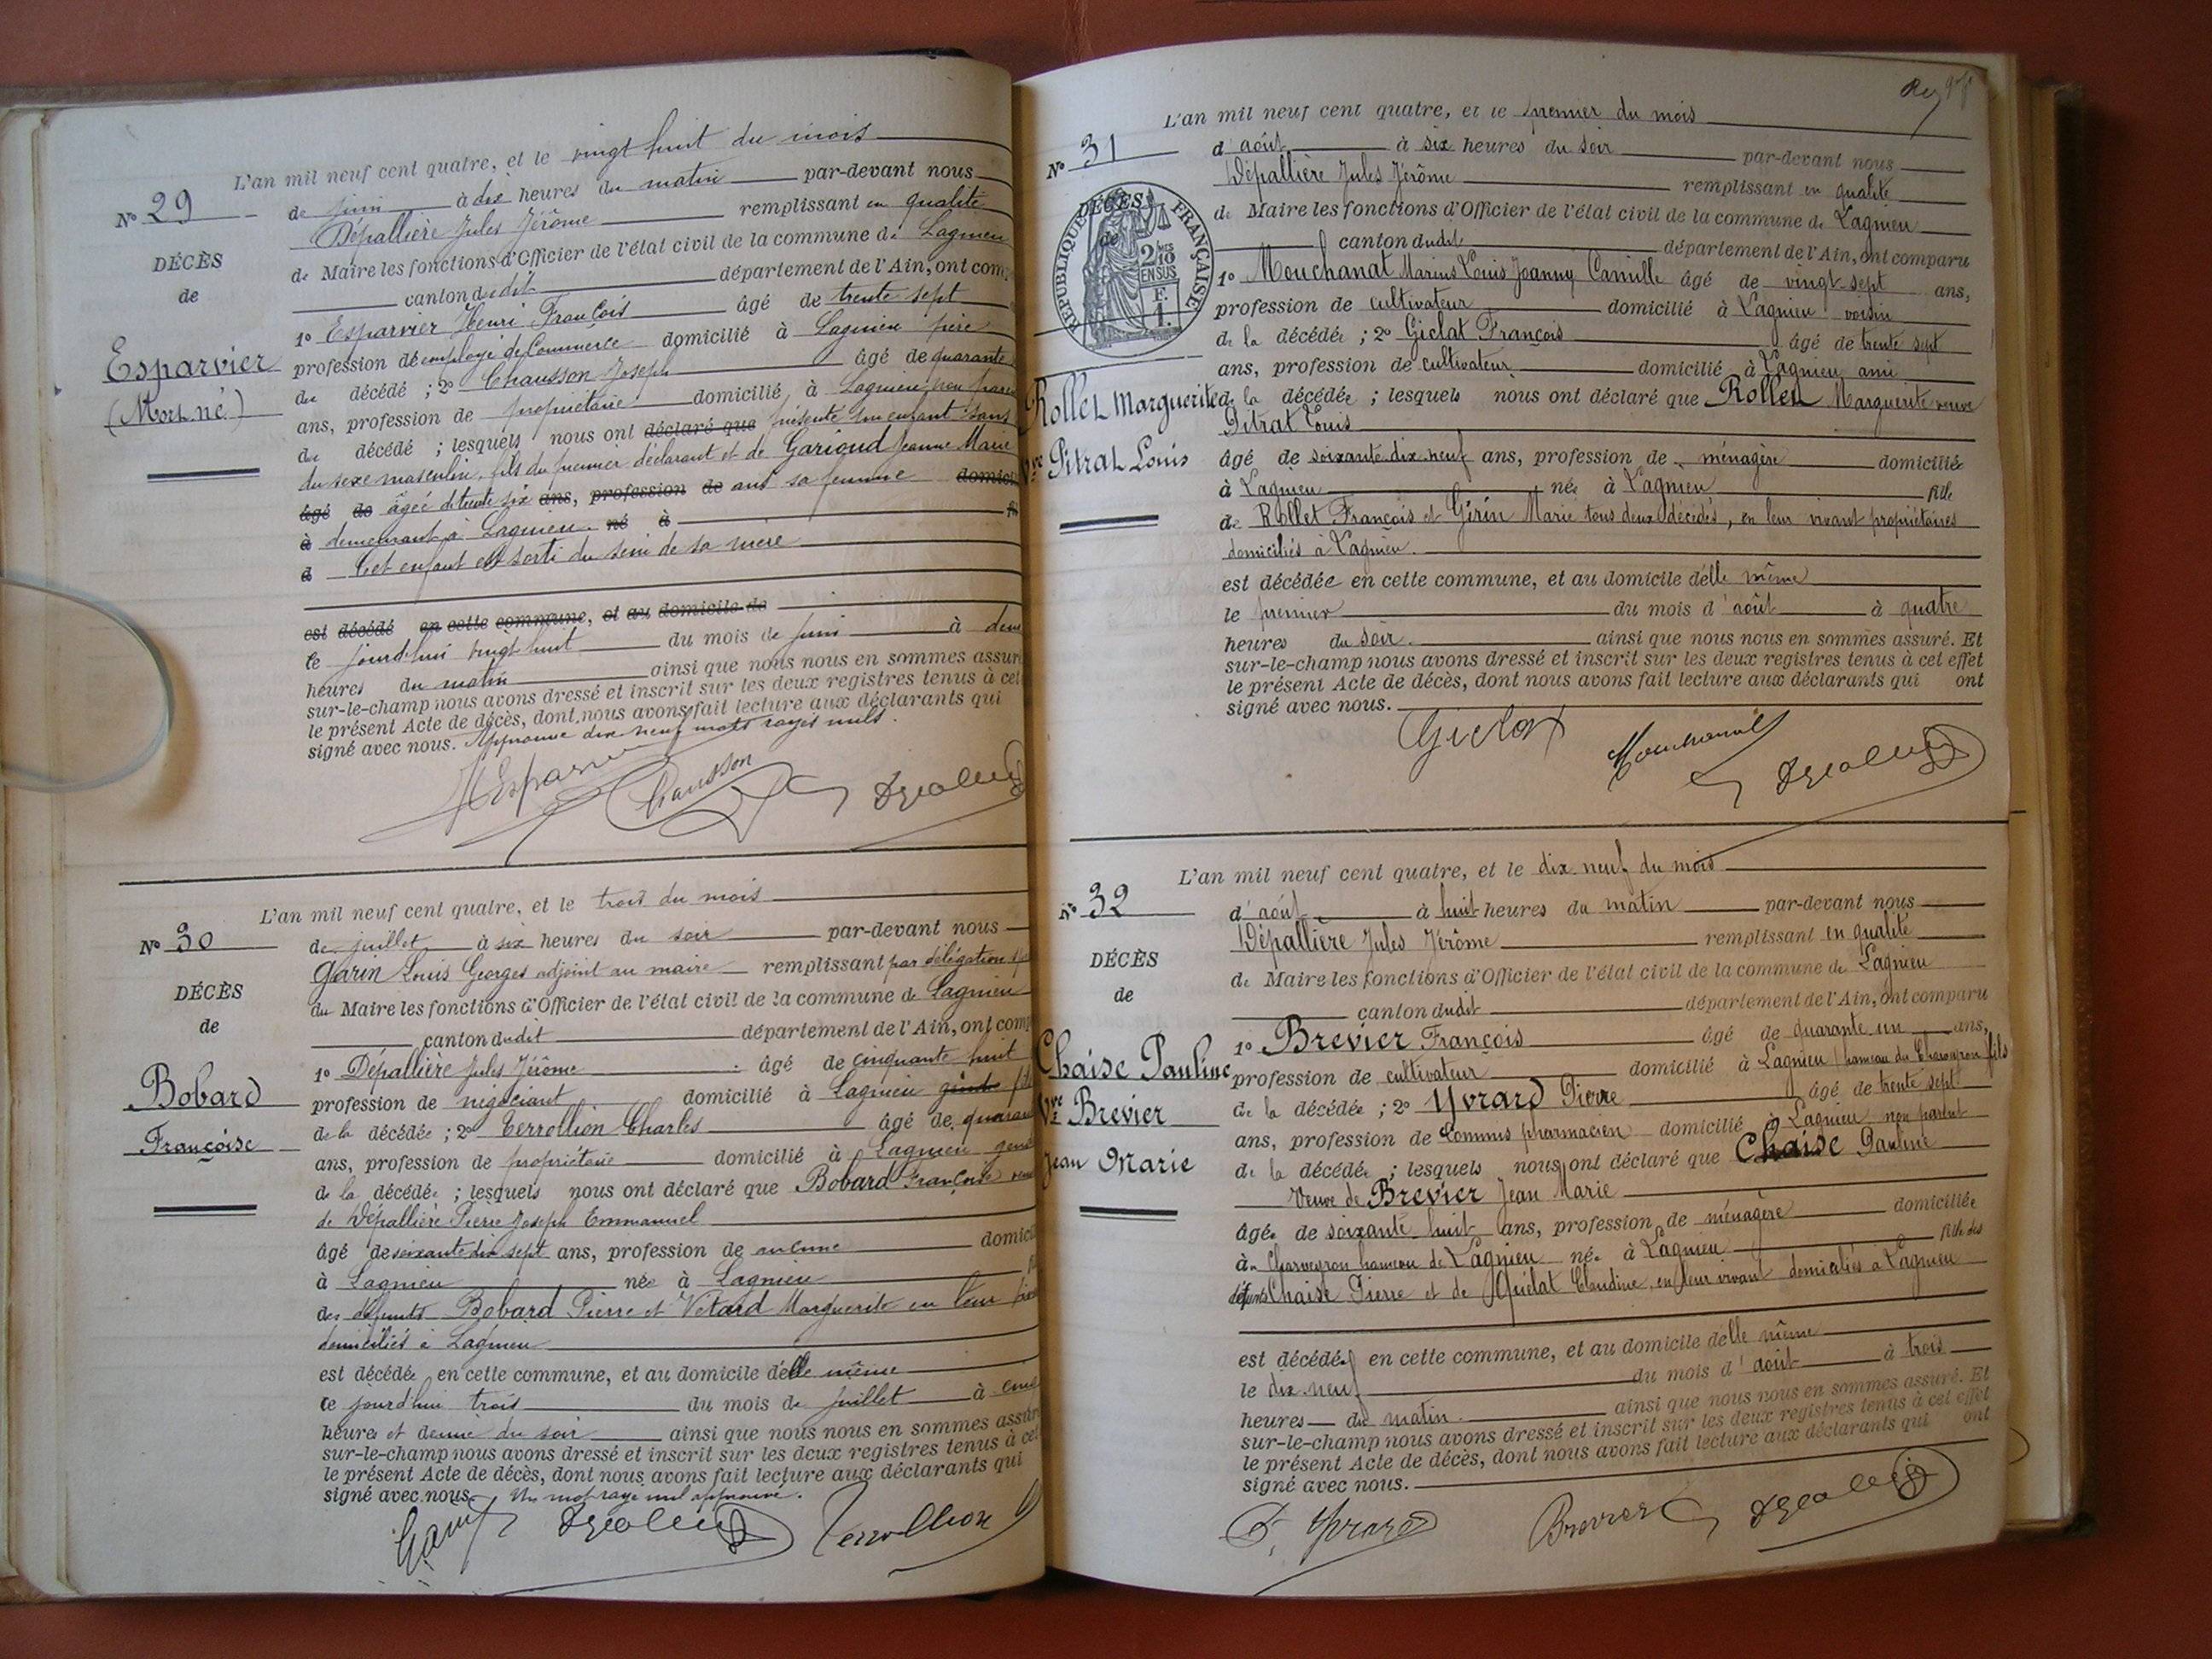 L'an mil neuf cent quatre, et le vingt huit du mois
N° 29
de juin à dix heures du matin par-devant nous
Dépallière Jules Jérôme remplissant en qualité
DÉCÈS
de Maire les fonctions d'Officier de l'état civil de la commune de Lagnieu
de
canton dudit département de l'Ain, ont com
1° Esparvier Henri François âgé de trente sept
Esparvier
profession d'employé de Commerce domicilié à Lagnieu père
(Mort né)
du décédé ; 2° Chausson Joseph âgé de quarante
ans, profession de propriétaire domicilié à Lagnieu non
du décédé ; lesquels nous ont déclaré que présenté un enfant sans
du sexe masculin, fils du premier déclarant et de Garioud Jeanne Marie
âgé de âgée de trente six ans, profession de ans sa femme
à demeurant à Lagnieu. né à
d Cet enfant est sorti du sein de sa mère
est décédé en cette commune, et au domicile de
ce jourd'hui vingt huit du mois de juin à
heures du matin ainsi que nous nous en sommes assur
sur-le-champ nous avons dressé et inscrit sur les deux registres tenus à cet
le présent Acte de décès, dont nous avons fait lecture aux déclarants qui
signé avec nous. Approuvé dix neuf mots rayés nuls.
HEsparvier Chausson
L'an mil neuf cent quatre, et le trois du mois
N° 30
de juillet à six heures du soir par-devant nous
Garin Louis Georges adjoint au maire remplissant par délégation
DÉCÈS
du Maire les fonctions d'Officier de l'état civil de la commune de Lagnieu
de
canton dudit département de l'Ain, ont comp
1° Dépallière Jules Jérôme âgé de cinquante huit
Bobard
profession de négociant domicilié à Lagnieu
de la décédée ; 2° Terrollion Charles âgé de
Françoise
ans, profession de propriétaire domicilié à Lagnieu
de la décédée ; lesquels nous ont déclaré que Bobard Françoise
de Dépallière Pierre Joseph Emmanuel
âgé de soixante dix sept ans, profession de aucune domici
à Lagnieu née à Lagnieu
des défunts Bobard Pierre et Vetard Marguerite en leur
domiciliés à Lagnieu
est décédée en cette commune, et au domicile d'elle même
ce jourd'hui trois du mois de juillet à
heures et demie du soir ainsi que nous nous en sommes assur
sur-le-champ nous avons dressé et inscrit sur les deux registres tenus à cet
le présent Acte de décès, dont nous avons fait lecture aux déclarants qui
signé avec nous. Un mot rayé nul approuvé.
Garin Terrollion
L'an mil neuf cent quatre, et le premier du mois
N° 31
d'août à six heures du soir par-devant nous
Dépallière Jules Jérôme remplissant en qualité
DÉCÈS
de
RÉPUBLIQUE FRANÇAISE
2 MES
10
EN SUS
F.
1.
de Maire les fonctions d'Officier de l'état civil de la commune de Lagnieu
canton dudit département de l'Ain, ont comparu
1° Mouchanat Marius Louis Joanny Camille âgé de vingt-sept ans,
profession de cultivateur domicilié à Lagnieu voisin
de la décédée ; 2° Giclat François âgé de trente sept
ans, profession de cultivateur domicilié à Lagnieu ami
Rollet Marguerite
de la décédée ; lesquels nous ont déclaré que Rollet Marguerite veuve
Pitrat Louis
Vve Pitrat Louis
âgé de soixante-dix-neuf ans, profession de ménagère domiciliée
à Lagnieu née à Lagnieu fille
de Rollet François et Girin Marie tous deux décédés, en leur vivant propriétaires
domiciliés à Lagnieu.
est décédée en cette commune, et au domicile d'elle même
le premier du mois d'août à quatre
heures du soir. ainsi que nous nous en sommes assuré. Et
sur-le-champ nous avons dressé et inscrit sur les deux registres tenus à cet effet
le présent Acte de décès, dont nous avons fait lecture aux déclarants qui ont
signé avec nous.
Giclat Mouchanat
L'an mil neuf cent quatre, et le dix neuf du mois
N° 32
d'août à huit heures du matin par-devant nous
Dépallière Jules Jérôme remplissant en qualité
DÉCÈS
de Maire les fonctions d'Officier de l'état civil de la commune de Lagnieu
de
canton dudit département de l'Ain, ont comparu
1° Brevier François âgé de quarante-un ans,
Chaise Pauline
profession de cultivateur domicilié à Lagnieu hameau de Charveyron fils
Vve Brevier
de la décédée ; 2° Yvrard Pierre âgé de trente sept
ans, profession de Commis pharmacien domicilié à Lagnieu non parent
Jean Marie
de la décédée ; lesquels nous ont déclaré que Chaise Pauline
Veuve de Brevier Jean Marie
âgée de soixante huit ans, profession de ménagère domiciliée
à Charveyron hameau de Lagnieu née à Lagnieu fille des
défunts Chaise Pierre et de Guiclat Claudine, en leur vivant domiciliés à Lagnieu
est décédée en cette commune, et au domicile d'elle même
le dix-neuf du mois d'août à trois
heures du matin. ainsi que nous nous en sommes assuré. Et
sur-le-champ nous avons dressé et inscrit sur les deux registres tenus à cet effet
le présent Acte de décès, dont nous avons fait lecture aux déclarants qui ont
signé avec nous.
P. Yvrard Brevier